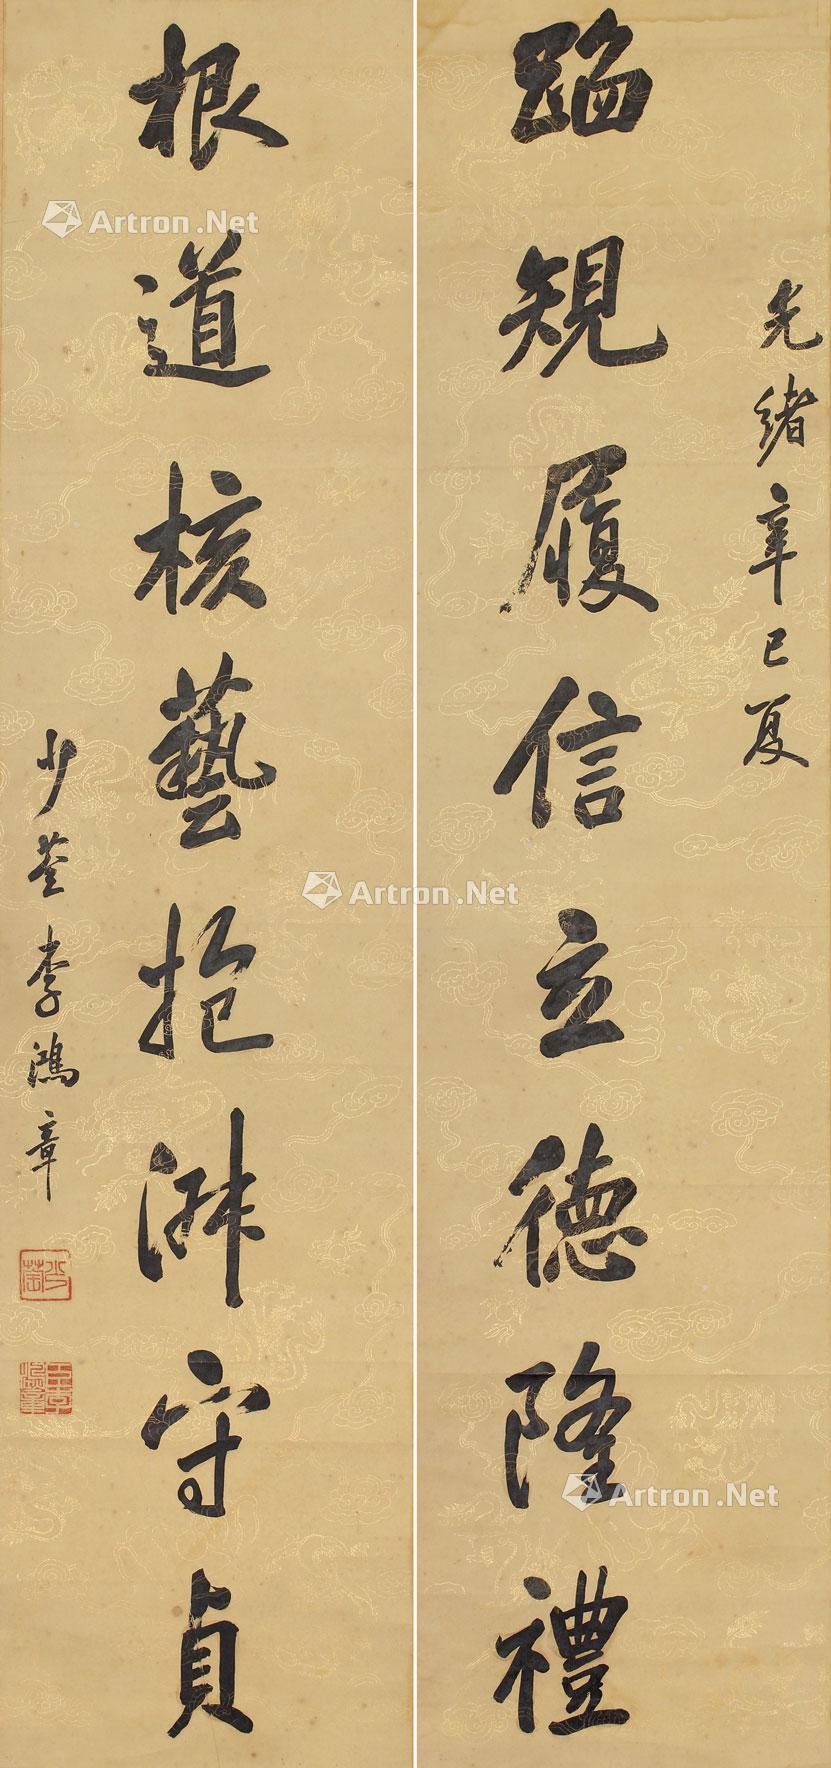 光緒辛巳夏
蹈規履信立德隆禮
根道核藝抱淑守貞
少荃李鴻章
少荃
臣李鴻章
Artron.Net
Artron.Net
Artron.Net